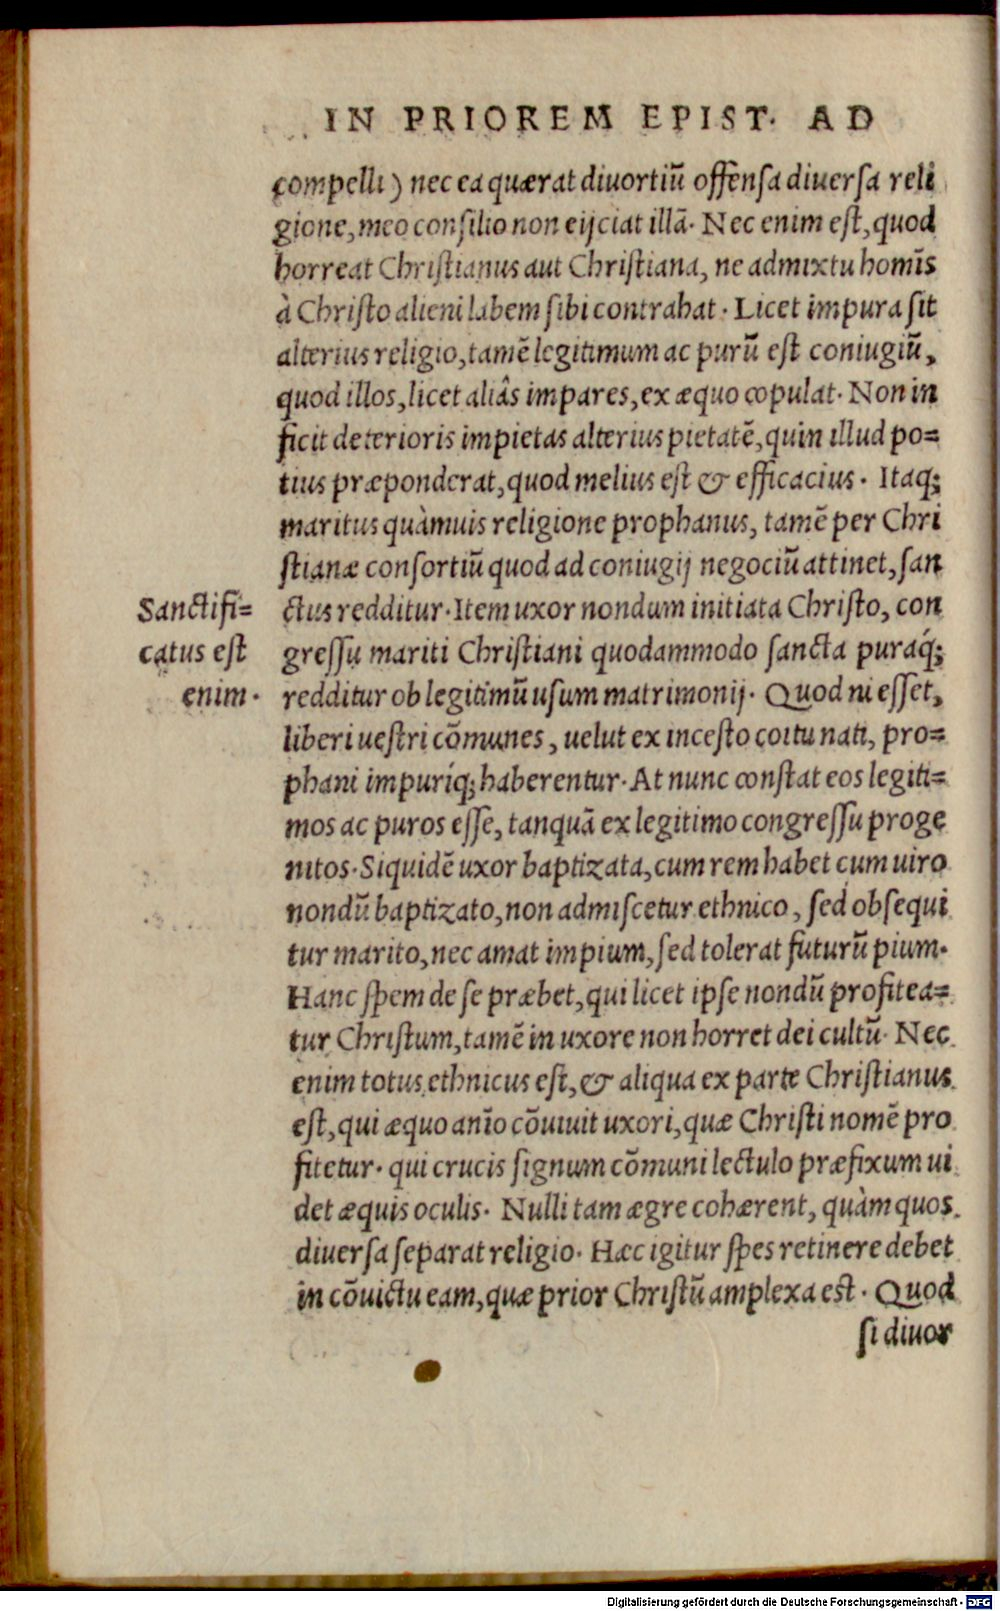 IN PRIOREM EPIST. AD
compelli) nec ea quærat diuortiũ offensa diuersa reli
gione, meo consilio non eijciat illã. Nec enim est, quod
horreat Christianus aut Christiana, ne admixtu homĩs
à Christo alieni labem sibi contrahat. Licet impura sit
alterius religio, tamẽ legitimum ac purũ est coniugiũ,
quod illos, licet aliâs impares, ex æquo copulat. Non in
ficit deterioris impietas alterius pietatẽ, quin illud po=
tius præponderat, quod melius est & efficacius. Itaq;
maritus quàmuis religione prophanus, tamẽ per Chri
stianæ consortiũ quod ad coniugij negociũ attinet, san
Sanctifi=
catus est
enim.
ctus redditur. Item uxor nondum initiata Christo, con
gressu mariti Christiani quodammodo sancta puraq́;
redditur ob legitimũ usum matrimonij. Quod ni esset,
liberi uestri cõmunes, uelut ex incesto coitu nati, pro=
phani impuríq; haberentur. At nunc constat eos legiti=
mos ac puros esse, tanquã ex legitimo congressu proge
nitos. Siquidẽ uxor baptizata, cum rem habet cum uiro
nondũ baptizato, non admiscetur ethnico, sed obsequi
tur marito, nec amat impium, sed tolerat futurũ pium.
Hanc spem de se præbet, qui licet ipse nondũ profitea=
tur Christum, tamẽ in uxore non horret dei cultũ. Nec
enim totus ethnicus est, & aliqua ex parte Christianus
est, qui æquo anĩo cõuiuit uxori, quæ Christi nomẽ pro
fitetur. qui crucis signum cõmuni lectulo præfixum ui
det æquis oculis. Nulli tam ægre cohærent, quàm quos
diuersa separat religio. Hæc igitur spes retinere debet
in cõuictu eam, quæ prior Christũ amplexa est. Quod
si diuor
Digitalisierung gefördert durch die Deutsche Forschungsgemeinschaft - DFG